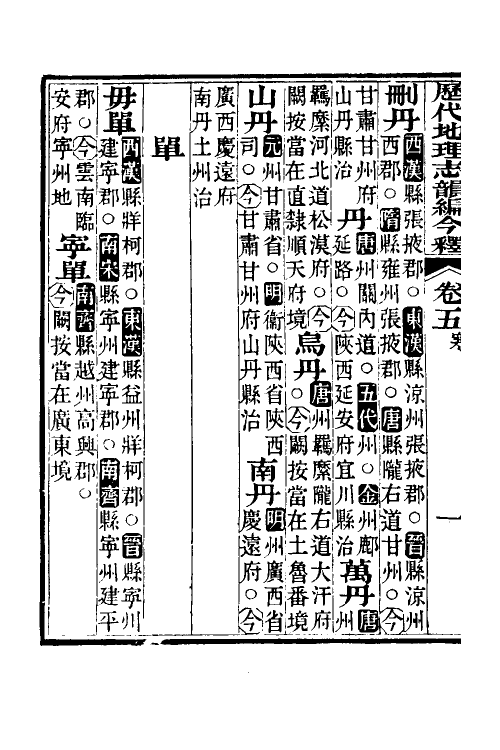 歷代地理志韻編今釋 卷五 寒 一
刪丹
西漢縣張掖郡○東漢縣涼州張掖郡○晉縣涼州
西郡○隋縣雍州張掖郡○唐縣隴右道甘州○今
甘肅甘州府
山丹縣治
丹
唐州關內道○五代州○金州鄜
延路○今陝西延安府宜川縣治
萬丹
唐
州
羈縻河北道松漠府○今
闕按當在直隸順天府境
烏丹
唐州羈縻隴右道大汗府
○今闕按當在土魯番境
山丹
元州甘肅省○明衞陝西省陝西
司○今甘肅甘州府山丹縣治
南丹
明州廣西省
慶遠府○今
廣西慶遠府
南丹土州治
單
毋單
西漢縣牂柯郡○東漢縣益州牂柯郡○晉縣寧州
建寧郡○南宋縣寧州建寧郡○南齊縣寧州建平
郡○今雲南臨
安府寧州地
寧單
南齊縣越州高興郡○
今闕按當在廣東境